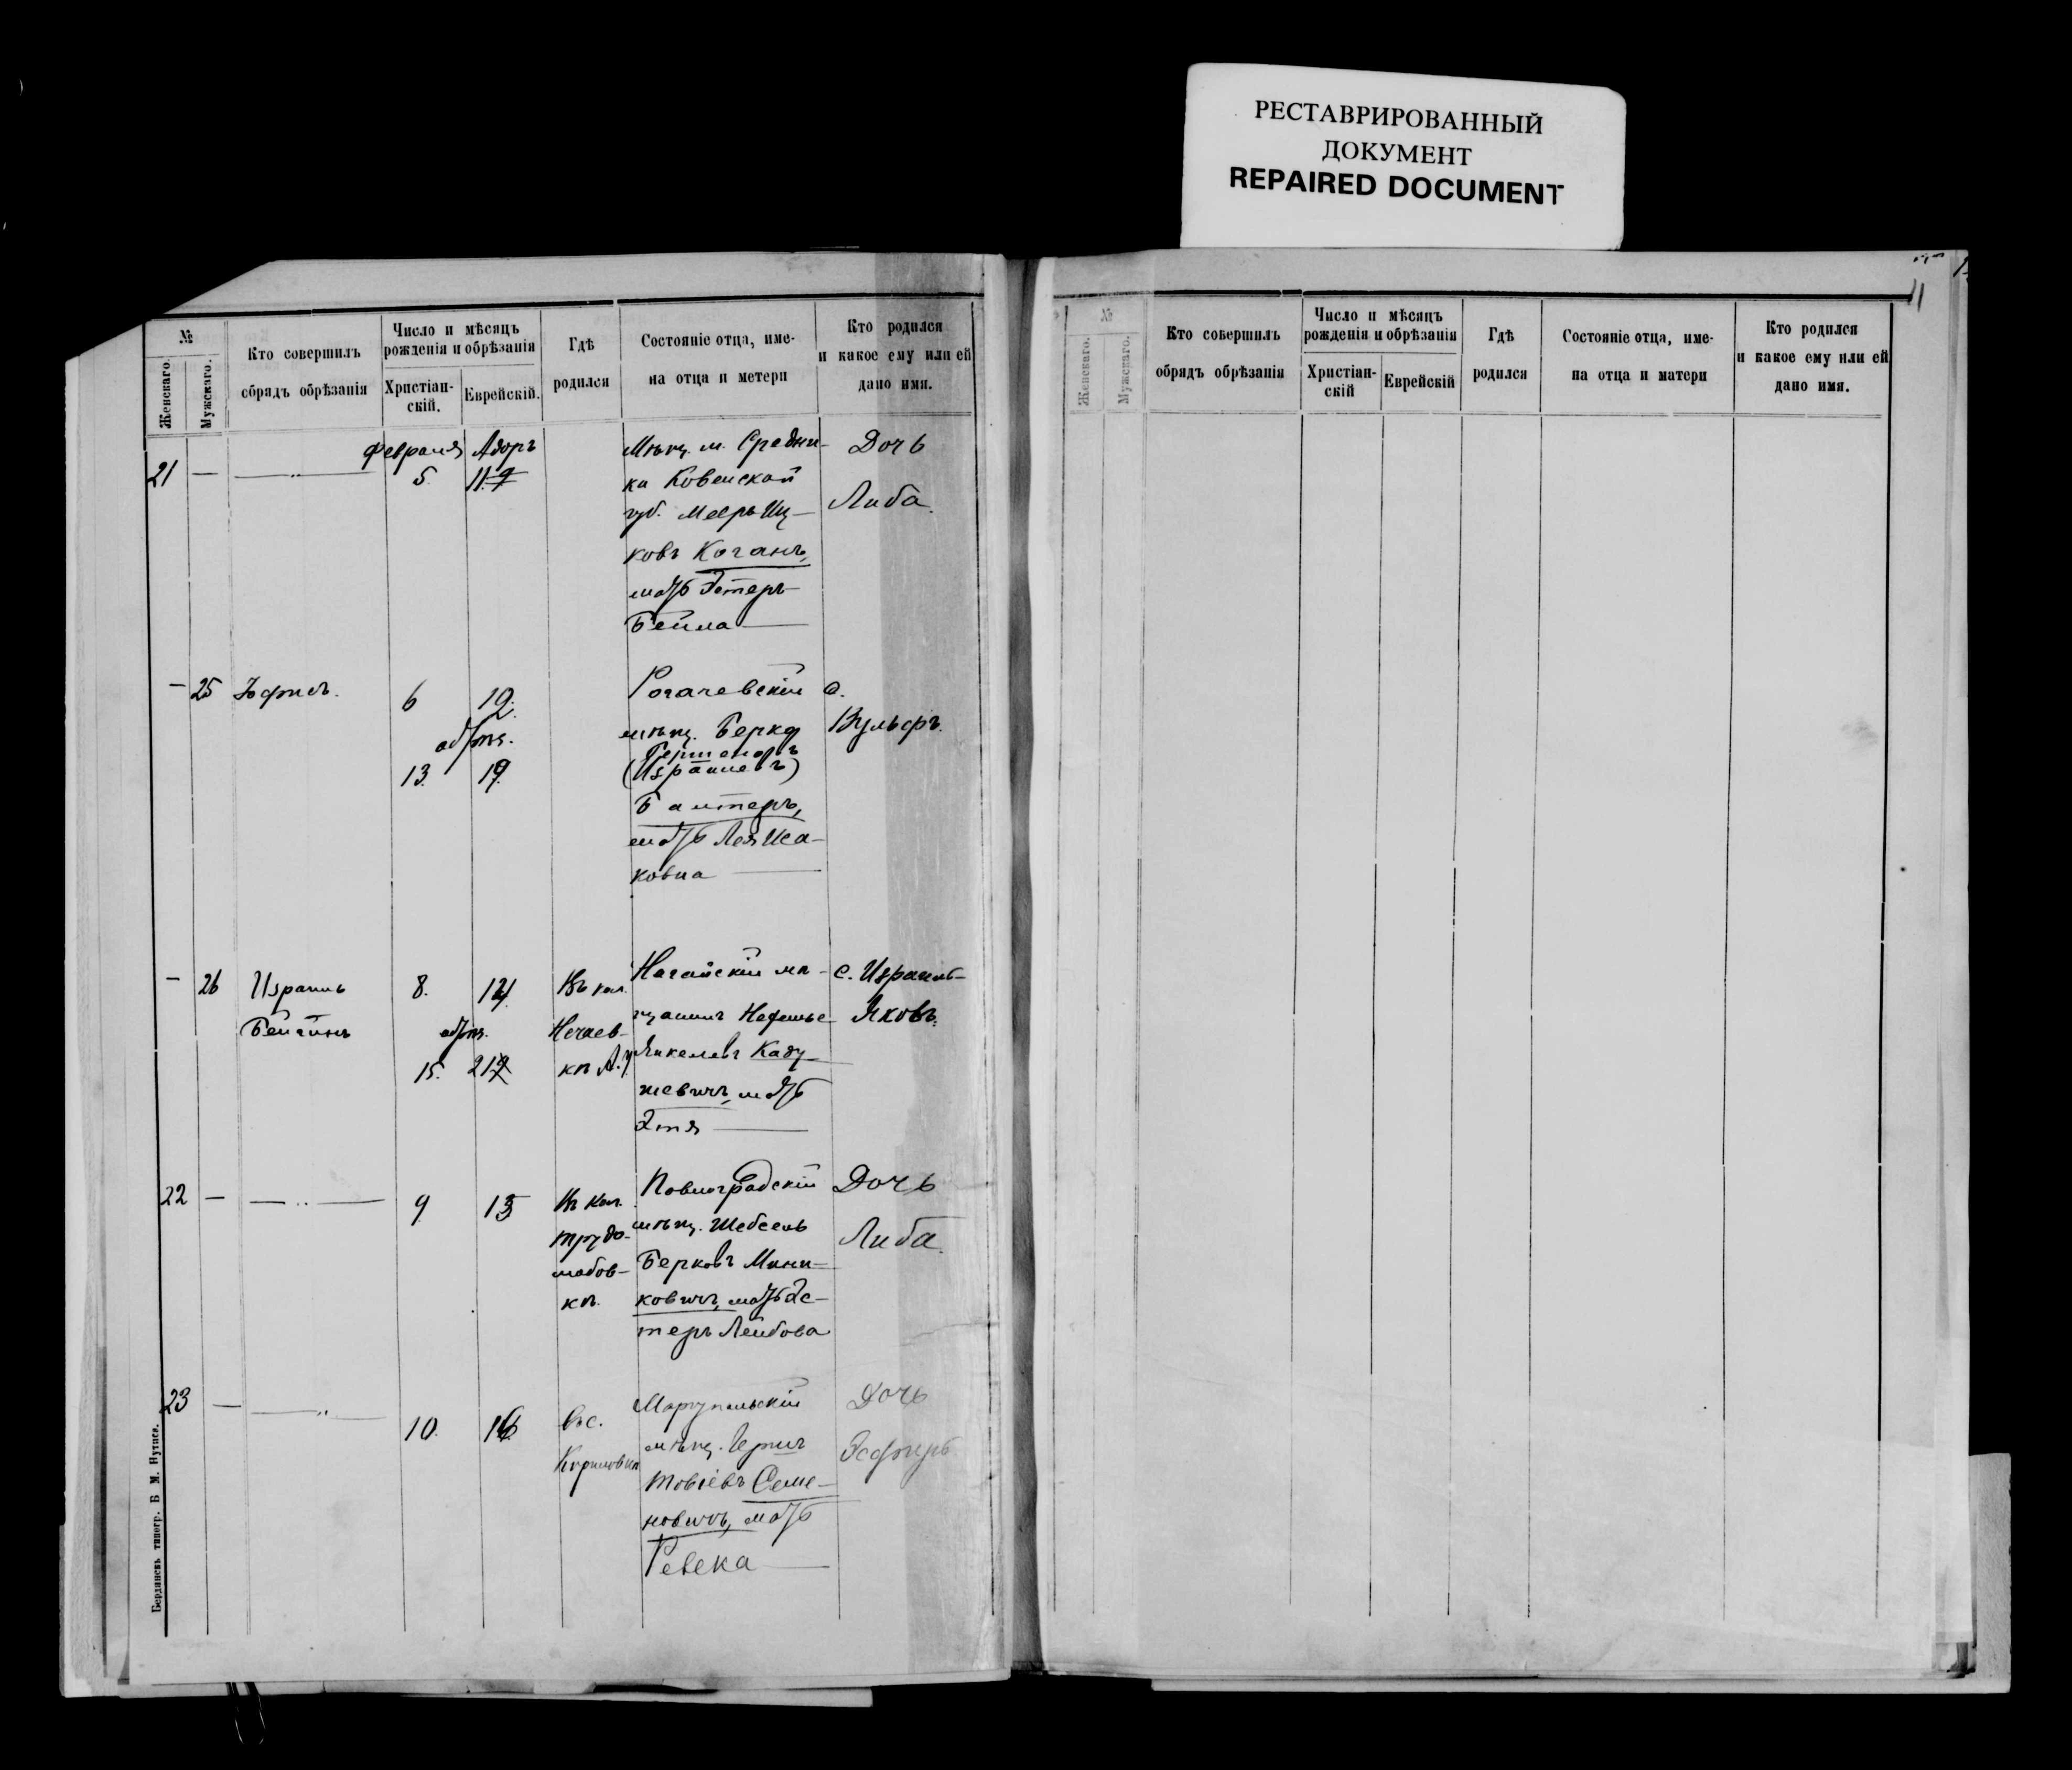 РЕСТАВРИРОВАННЫЙ
ДОКУМЕНТ
REPAIRED DOCUMENT
№
Женскаго.
Мужскаго.
Кто совершилъ
обрядъ обрѣзанія
Число и мѣсяцъ
рожденія и обрѣзанія
Христіан-
скій.
Еврейскій.
Гдѣ
родился
Состояніе отца, име-
на отца и метери
Кто родился
и какое ему или ей
дано имя.
21 —
Февраля Адоръ
5. 11
Мѣщ. м. Средни-
ка Ковенской
губ. Мееръ Иц-
ковъ Коганъ,
мать Эстеръ-
Бейла
Дочь
Либа.
— 25
6 12.
обрѣз.
13. 19
Рогачевскій
мѣщ. Берко
(Израилевъ)
мать Лея Иса-
ковна
с.
Вульфъ.
— 26 Израиль
8. 14
обрѣз.
15. 21
Въ кол.
Нечаев-
кѣ А. у.
Ногайскій мѣ-
щанинъ
Янкелевъ Каду-
шевичъ, мать
Этя
с. Израиль-
Яковъ.
22 —
9 15
Въ кол.
Трудо-
любов-
кѣ.
Павлоградскій
мѣщ. Шебсель
Берковъ Мини-
ковичъ, мать Эс-
теръ Лейбова
Дочь
Либа.
23 —
10. 16
въ с.
Кириловкѣ
Маріупольскій
мѣщ. Гершъ
Товіевъ Семе-
новичъ, мать
Ревека
Дочь
Эсфирь
Бердянскъ типогр. Б М. Нутиса.
11
№
Женскаго.
Мужскаго.
Кто совершилъ
обрядъ обрѣзанія
Число и мѣсяцъ
рожденія и обрѣзанія
Христіан-
скій
Еврейскій
Гдѣ
родился
Состояніе отца, име-
на отца и матери
Кто родился
и какое ему или ей
дано имя.